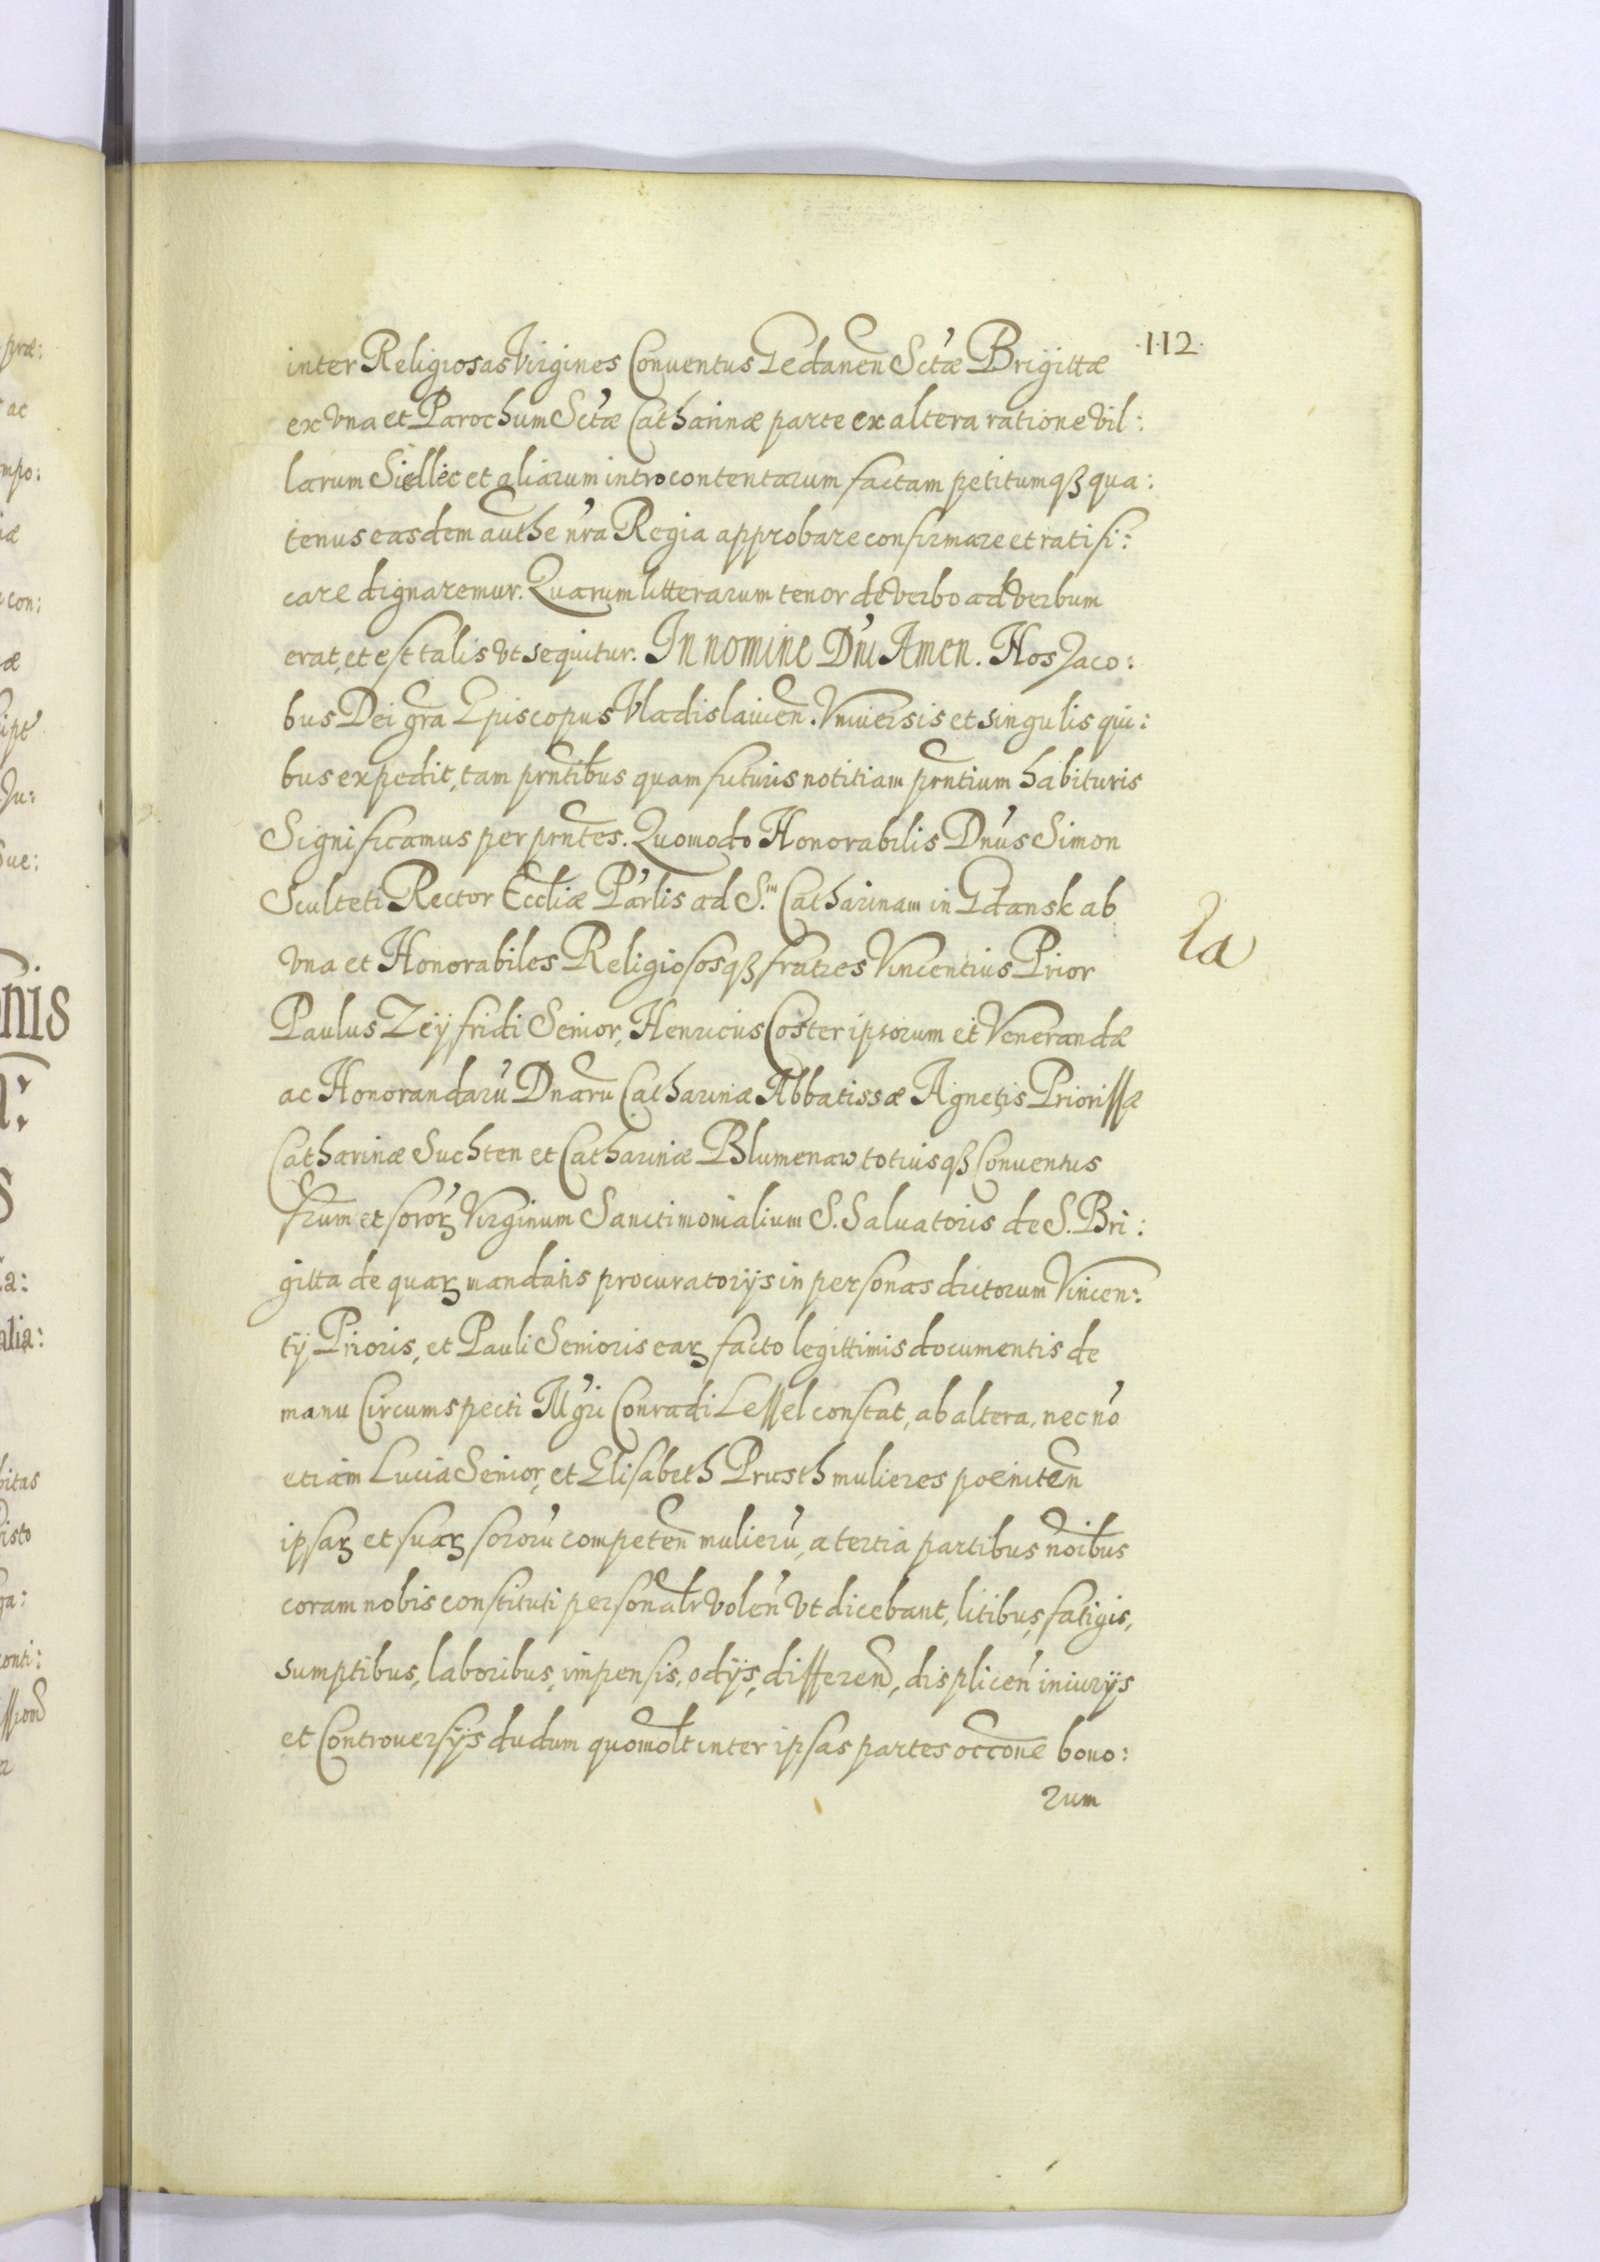 ·112·
inter Religiosas Virgines Conventus Gedanen̄ Sctæ Brigittæ
ex vna et Parochum Sctæ Catharinæ parte ex altera ratione vil:
larum Siedlec et aliarum intro contentarum factam petitumqꝫ qua:
tenus easdem authē nr̄a Regia approbare confirmare et ratifi:
care dignaremur. Quarum litterarum tenor de verbo ad verbum
erat, et est talis vt sequitur. In nomine Dn̄i Amen. Nos Jaco:
bus Dei gr̄a Episcopus Vladislauien̄. Vniuersis et singulis qui:
bus expedit, tam prn̄tibus quam futuris notitiam prn̄tium habituris
Significamus per prn̄tes. Quomodo Honorabilis Dn̄us Simon
Sculteti Rector Eccl̄iæ Par̄lis ad S.ᵐ Catharinam in Gdansk ab
vna et Honorabiles Religiososqꝫ fratres Vincentius Prior
Paulus Zeyfridi Senior, Henricus Coster ipsorum et Venerandæ
ac Honorandarū Dn̄arū Catharinæ Abbatissæ Agnetis Priorissæ
Catharinæ Suchten et Catharinæ Blumenaw totiusqꝫ Conventus
fr̄um et soroꝝ Virginum Sanctimonialium S. Saluatoris de S. Bri:
gitta de quaꝝ mandatis procuratorijs in personas dictorum Vincen:
tij Prioris, et Pauli Senioris eaꝝ facto legittimis documentis de
manu Circumspecti Mgr̄i Conradi Lessel constat, ab altera, nec nō
etiam Lucia Senior, et Elisabeth Prusth mulieres poeniten̄
ipsaꝝ et suaꝝ sororū competen̄ mulierū, a tertia partibus nōibus
coram nobis constituti personalr̄ volen̄ vt dicebant, litibus, fatigis,
sumptibus, laboribus, impensis, odijs, differen̄, displicen̄ iniurijs
et Controuersijs dudum quomol̄t inter ipsas partes occōne bono:
rum